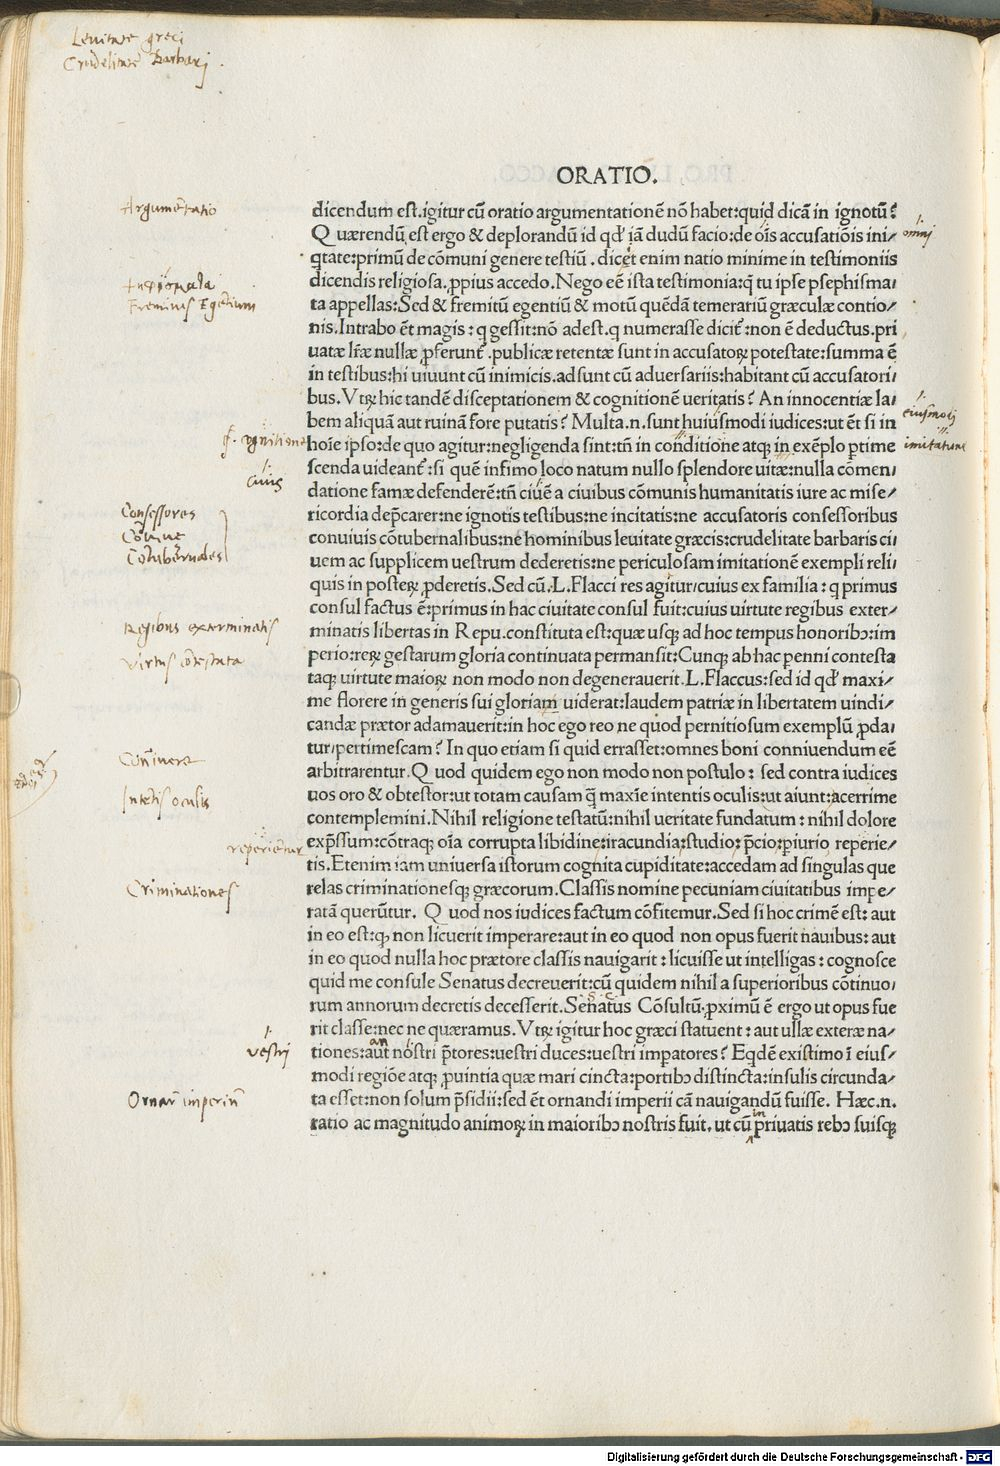 Levitate greci
Crudelitate Barbari.
ORATIO.
Argumētatio
dicendum est.igitur cū oratio argumentationē nō habet:quid dicā in ignotū?
Quærendū est ergo & deplorandū id qđ iā dudū facio:de oīs accusatiōis ini/
omni
q̄tate:primū de cōmuni genere testiū.dicet enim natio minime in testimoniis
dicendis religiosa.ꝓpius accedo.Nego eē ista testimonia:q̄ tu ipse psephisma/
ta appellas:Sed & fremitū egentiū & motū quēdā temerariū græculæ contio/
Fremitus Egētium
nis.Intrabo ēt magis:q gessit:nō adest.q numerasse dicit᷑:non ē deductus.pri
uatæ lr̄æ nullæ ꝓferunt᷑.publicæ retentæ sunt in accusatoꝝ potestate:summa ē
in testibus:hi uiuunt cū inimicis.adsunt cū aduersariis:habitant cū accusatori/
bus.Vtꝝ hic tandē disceptationem & cognitionē ueritatis? An innocentiæ la/
bem aliquā aut ruinā fore putatis? Multa.n.sunt huiusmodi iudices:ut ēt si in
eiusmodi
hoīe ipso:de quo agitur:negligenda sint:tn̄ in conditione atqꝫ in exēplo ꝑtime
cognitione
imitatione
scenda uideant᷑:si quē infimo loco natum nullo splendore uitæ:nulla cōmen/
datione famæ defenderē:tn̄ ciuē a ciuibus cōmunis humanitatis iure ac mise/
ciuis
ricordia dep̄carer:ne ignotis testibus:ne incitatis:ne accusatoris consessoribus
Consessores
conuiuis cōtubernalibus:ne hominibus leuitate græcis:crudelitate barbaris ci/
Cōtubernales
uem ac supplicem uestrum dederetis:ne periculosam imitationē exempli reli/
quis in posteꝝ ꝓderetis.Sed cū.L.Flacci res agitur/cuius ex familia:q primus
consul factus ē:primus in hac ciuitate consul fuit:cuius uirtute regibus exter/
minatis libertas in Repu.constituta est:quæ usqꝫ ad hoc tempus honoribꝰ:im
Regibus exterminatis
perio:reꝝ gestarum gloria continuata permansit:Cunqꝫ ab hac perenni contesta
Virtus cōtestata
taqꝫ uirtute maioꝝ non modo non degenerauerit.L.Flaccus:sed id qđ maxi/
me florere in generis sui gloriam uiderat:laudem patriæ in libertatem uindi/
candæ prætor adamauerit:in hoc ego reo ne quod pernitiosum exemplū ꝓda/
tur/pertimescam? In quo etiam si quid errasset:omnes boni conniuendum eē
Conīuere
arbitrarentur.Quod quidem ego non modo non postulo: sed contra iudices
uos oro & obtestor:ut totam causam q̄ maxīe intentis oculis:ut aiunt:acerrime
Intētis oculis
contemplemini.Nihil religione testatū:nihil ueritate fundatum: nihil dolore
exp̄ssum:cōtraqꝫ oīa corrupta libidine:iracundia:studio:p̄cio:ꝑiurio reperie/
reperientur
tis.Etenim iam uniuersa istorum cognita cupiditate:accedam ad singulas que
relas criminationesqꝫ græcorum.Classis nomine pecuniam ciuitatibus impe/
Criminationes
ratā querūtur. Quod nos iudices factum cōfitemur.Sed si hoc crimē est: aut
in eo est:qꝫ non licuerit imperare:aut in eo quod non opus fuerit nauibus: aut
in eo quod nulla hoc prætore classis nauigarit:licuisse ut intelligas: cognosce
quid me consule Senatus decreuerit:cū quidem nihil a superioribus cōtinuo/
rum annorum decretis decesserit.Senatus Cōsultū.ꝓximū ē ergo ut opus fue
rit classe:nec ne quæramus.Vtꝝ igitur hoc græci statuent: aut ullæ exteræ na/
an
tiones:aut nostri p̄tores:uestri duces:uestri imꝑatores? Eqdē existimo ī eius/
vestri
modi regiōe atqꝫ ꝓuintia quæ mari cincta:portibꝰ distincta:insulis circunda/
ta esset:non solum p̄sidii:sed ēt ornandi imperii cā nauigandū fuisse. Hæc.n.
in
ratio ac magnitudo animoꝝ in maioribꝰ nostris fuit.ut cū priuatis rebꝰ suisqꝫ
Digitalisierung gefördert durch die Deutsche Forschungsgemeinschaft - DFG